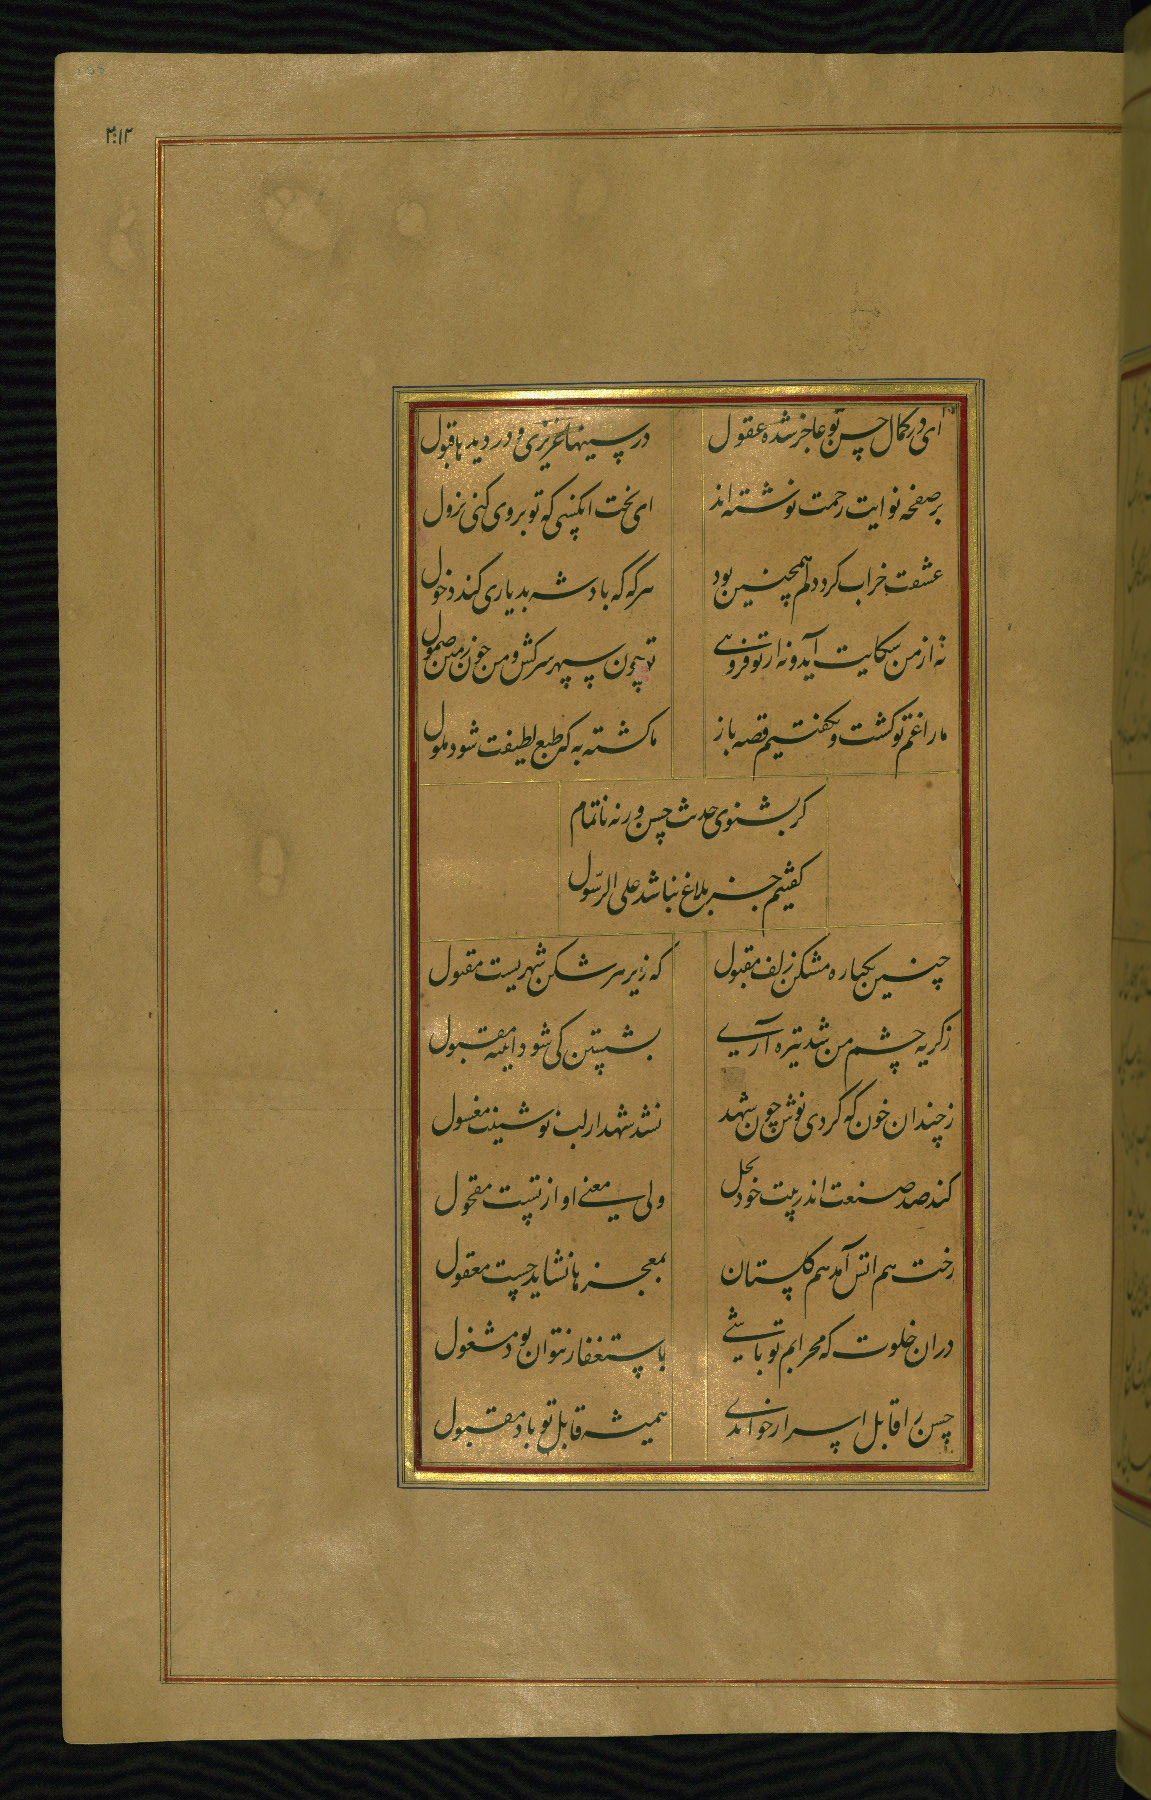 ۲۰۱۲
ای در کمال حسن تو عاجز شده عقول
در سینها عزیزی و در دیدها قبول
بر صفحه تو ایت رحمت نوشته اند
ای بخت انکسی که تو بروی کنی نزول
عشقت خراب کرد دلم همچنین بود
هر که که بادشه بدیاری کند دخول
نه از من شکایت آید و نه از تو فروهی
تو چون سپهر سرکش و من چون زمین حمول
ما را غم تو کشت و بکفتیم قصه باز
ما کشته به که طبع لطیفت شود ملول
کر بشنوی حدث حسن ورنه ناتمام
کفتیم جز بلاغ نباشد علی الرسول
چنین یکباره مشکن زلف مقبول
که زیر هر شکن شهریست مقبول
ز کریه چشم من شد تیره آری
بشستن کی شود اینه مقبول
ز چندان خون که کردی نوش چون شهد
نشد شهد از لب نوشینت مغسول
کند صد صنعت اندر بیت خود نحل
ولی معنی او از تست منحول
رخت هم اتش آمد هم کلستان
بمعجزها نشاید جست معقول
دران خلوت که محرابم تو باشی
باستغفار نتوان بود مشغول
حسن را قابل اسرار خواندی
همیشه قابل تو باد مقبول